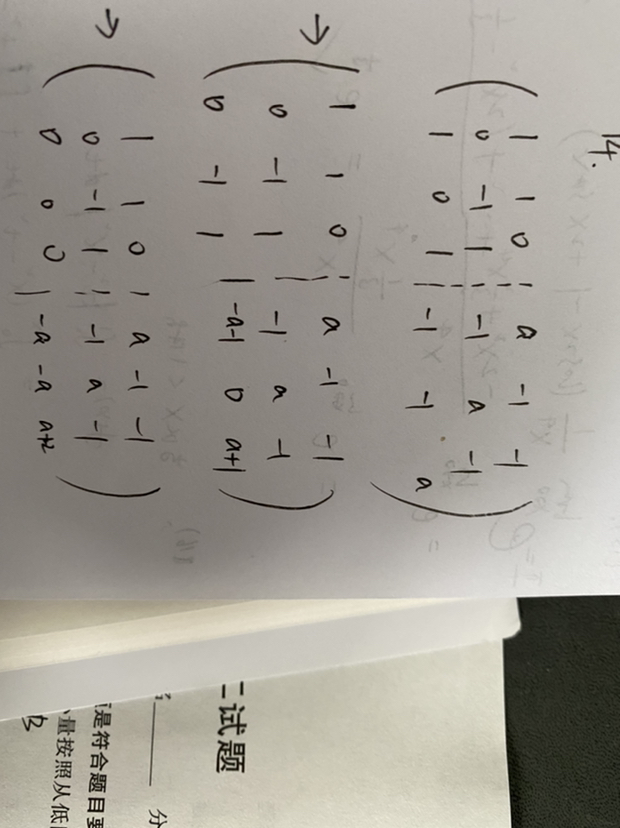 14.
1 1 0 | a -1 -1
0 -1 1 | -1 a -1
1 0 1 | -1 -1 a
→
1 1 0 | a -1 -1
0 -1 1 | -1 a -1
0 -1 1 | -a-1 0 a+1
→
1 1 0 | a -1 -1
0 -1 1 | -1 a -1
0 0 0 | -a -a a+2
二试题
分
是符合题目要
量按照从低
B